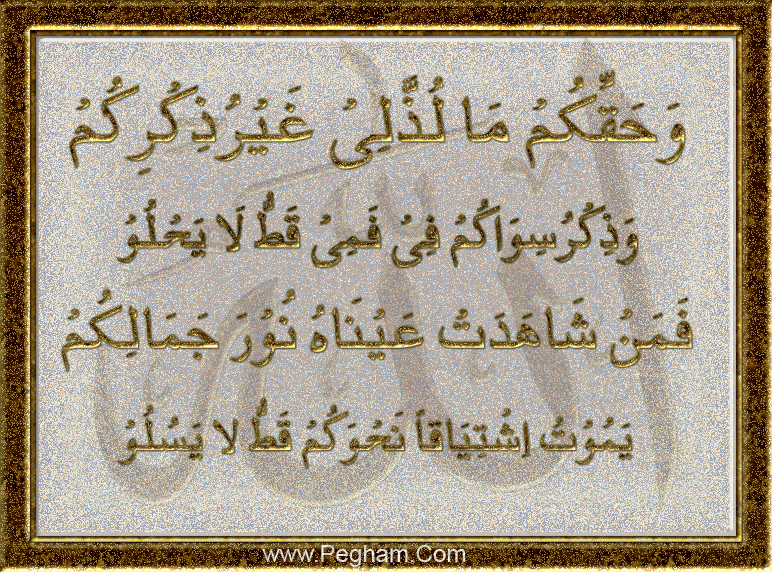 وَحَقِّكُمْ مَا لُذَّلِىْ غَيْرُذِكْرِكُمْ
وَذِكْرُسِوَاكُمْ فِىْ فَمِىْ قَطُّ لَا يَحْلُوْ
فَمَنْ شَاهَدَتْ عَيْنَاهُ نُوْرَ جَمَالِكُمْ
يَمُوْتُ اِشْتِيَاقاً نَحْوَكُمْ قَطُّ لا يَسْلُوْ
www.Pegham.Com